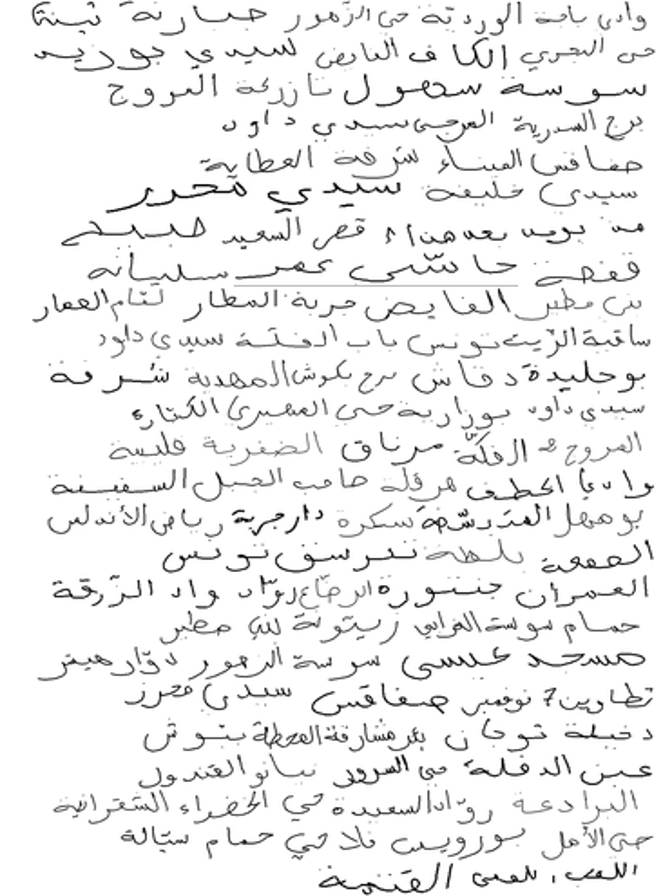 وادي باجة الوردية حي الزهور جبارنة ثبينة
حي البحري الكاف الفايض سيدي بوزيد
سوسة سهول تازركة العروج
برج السدرية المرجى سيدي داود
صفاقس الميناء شرفة العطاية
سيدي خليفة سيدي محرز
قصر السعيد
قفصة حاسي عمر سليانة
بني مطير الفايض جربة المطار لقام العمار
ساقية الزيت تونس باب الفلة سيدي داود
بوجليدة دقاش برج بكوش المهدية شرفة
سيدي داود بورارية حي المهيري الكتارة
المروج 2 الفكّة مرناق الصخرية قليبية
وادي الخطف هرقلة صاحب الجبل السفينة
بوسهل المدرسة سكرة دار جربة رياض الأندلس
بلطة نبرسق تونس
العمران جندوبة الرضاع روّاد واد الزرقة
حمام سوسة الفرابي زيتونة بني مطير
مسجد عيسى سوسة الزهور دوّار هيشر
تطاوين 7 نوفمبر صفاقس سيدي محرز
دخيلة توجان بئر مشارقة المحطة بنوش
عين الدفلة حي السرور نيانو القندول
البرادعة روّاد السعيدة حي الخضراء الشقرانية
حي الأمل بورويس فلاحي حمام سيّالة
القنيمة